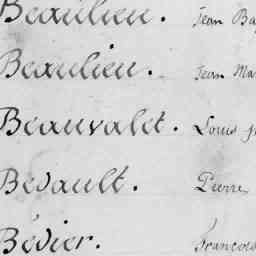 Beaulieu. Jean Ba
Beaulieu. Jean Ma
Beauvalet. Louis
Bedault. Pierre
Bédier. François